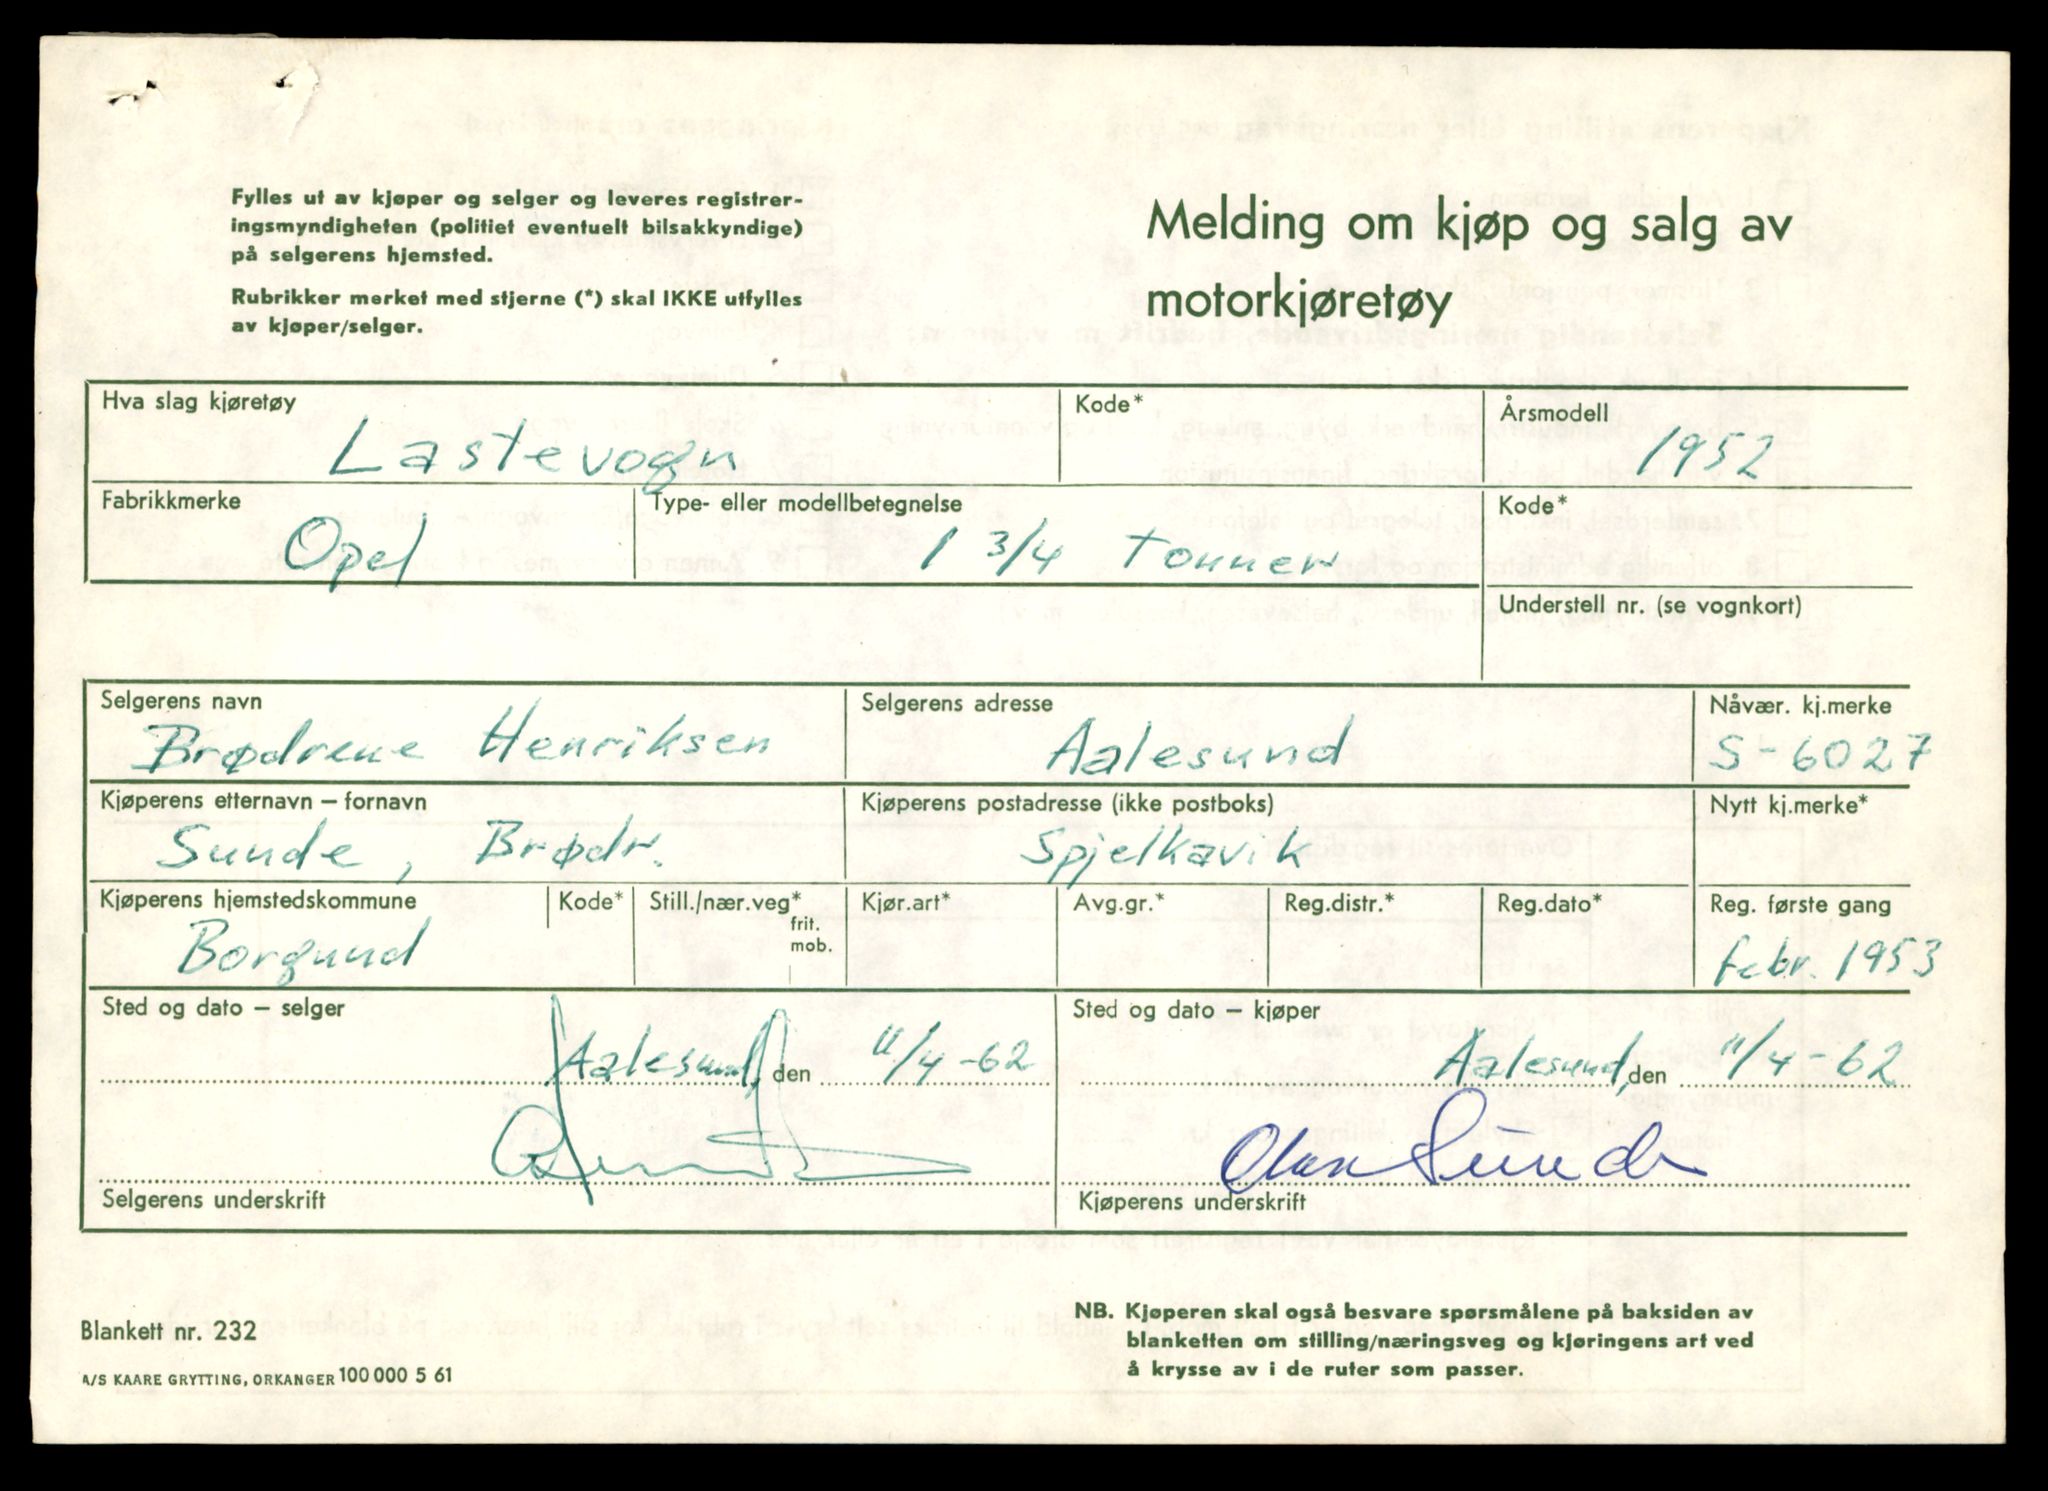 Fylles ut av kjøper og selger og leveres registrer-
ingsmyndigheten (politiet eventuelt bilsakkyndige)
på selgerens hjemsted.
Rubrikker merket med stjerne (*) skal IKKE utfylles
av kjøper/selger.
Melding om kjøp og salg av
motorkjøretøy
Hva slag kjøretøy
Lastevogn
Kode*
Årsmodell
1952
Fabrikkmerke
Opel
Type- eller modellbetegnelse
1 3/4 tonner
Kode*
Understell nr. (se vognkort)
Selgerens navn
Brødrene Henriksen
Selgerens adresse
Aalesund
Nåvær. kj.merke
S-6027
Kjøperens etternavn – fornavn
Sunde, Brødr.
Kjøperens postadresse (ikke postboks)
Spjelkavik
Nytt kj.merke*
Kjøperens hjemstedskommune
Borgund
Kode*
Still./nær.veg*
frit.
mob.
Kjør.art*
Avg.gr.*
Reg.distr.*
Reg.dato*
Reg. første gang
febr. 1953
Sted og dato – selger
Aalesund, den 11/4-62
Selgerens underskrift
Sted og dato – kjøper
Aalesund, den 11/4-62
Sunde
Kjøperens underskrift
Blankett nr. 232
A/S KAARE GRYTTING, ORKANGER 100 000 5 61
NB. Kjøperen skal også besvare spørsmålene på baksiden av
blanketten om stilling/næringsveg og kjøringens art ved
å krysse av i de ruter som passer.